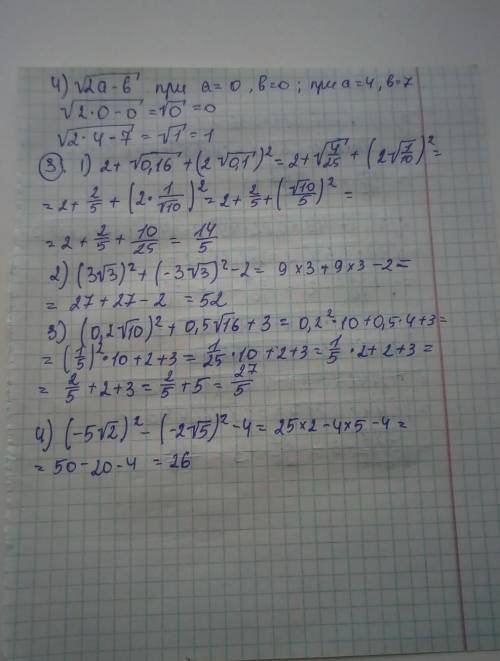 4) √(2a-b) при a=0, b=0; при a=4, b=7
√(2·0-0) = √0 = 0
√(2·4-7) = √1 = 1
③. 1) 2+√0,16+(2√0,1)² = 2+√(4/25)+(2√(1/10))² =
= 2+2/5+(2·1/√10)² = 2+2/5+(√10/5)² =
= 2+2/5+10/25 = 14/5
2) (3√3)²+(-3√3)²-2 = 9×3+9×3-2 =
= 27+27-2 = 52
3) (0,2√10)²+0,5√16+3 = 0,2²·10+0,5·4+3=
= (1/5)²·10+2+3 = 1/25·10+2+3 = 1/5·2+2+3 =
= 2/5+2+3 = 2/5+5 = 27/5
4) (-5√2)²-(-2√5)²-4 = 25×2-4×5-4 =
= 50-20-4 = 26